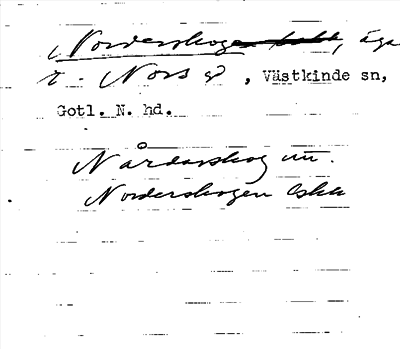 Norderskoge, äga
t. Nors , Västkinde sn,
Gotl. N. hd.
Nårdarskog
Norderskogen